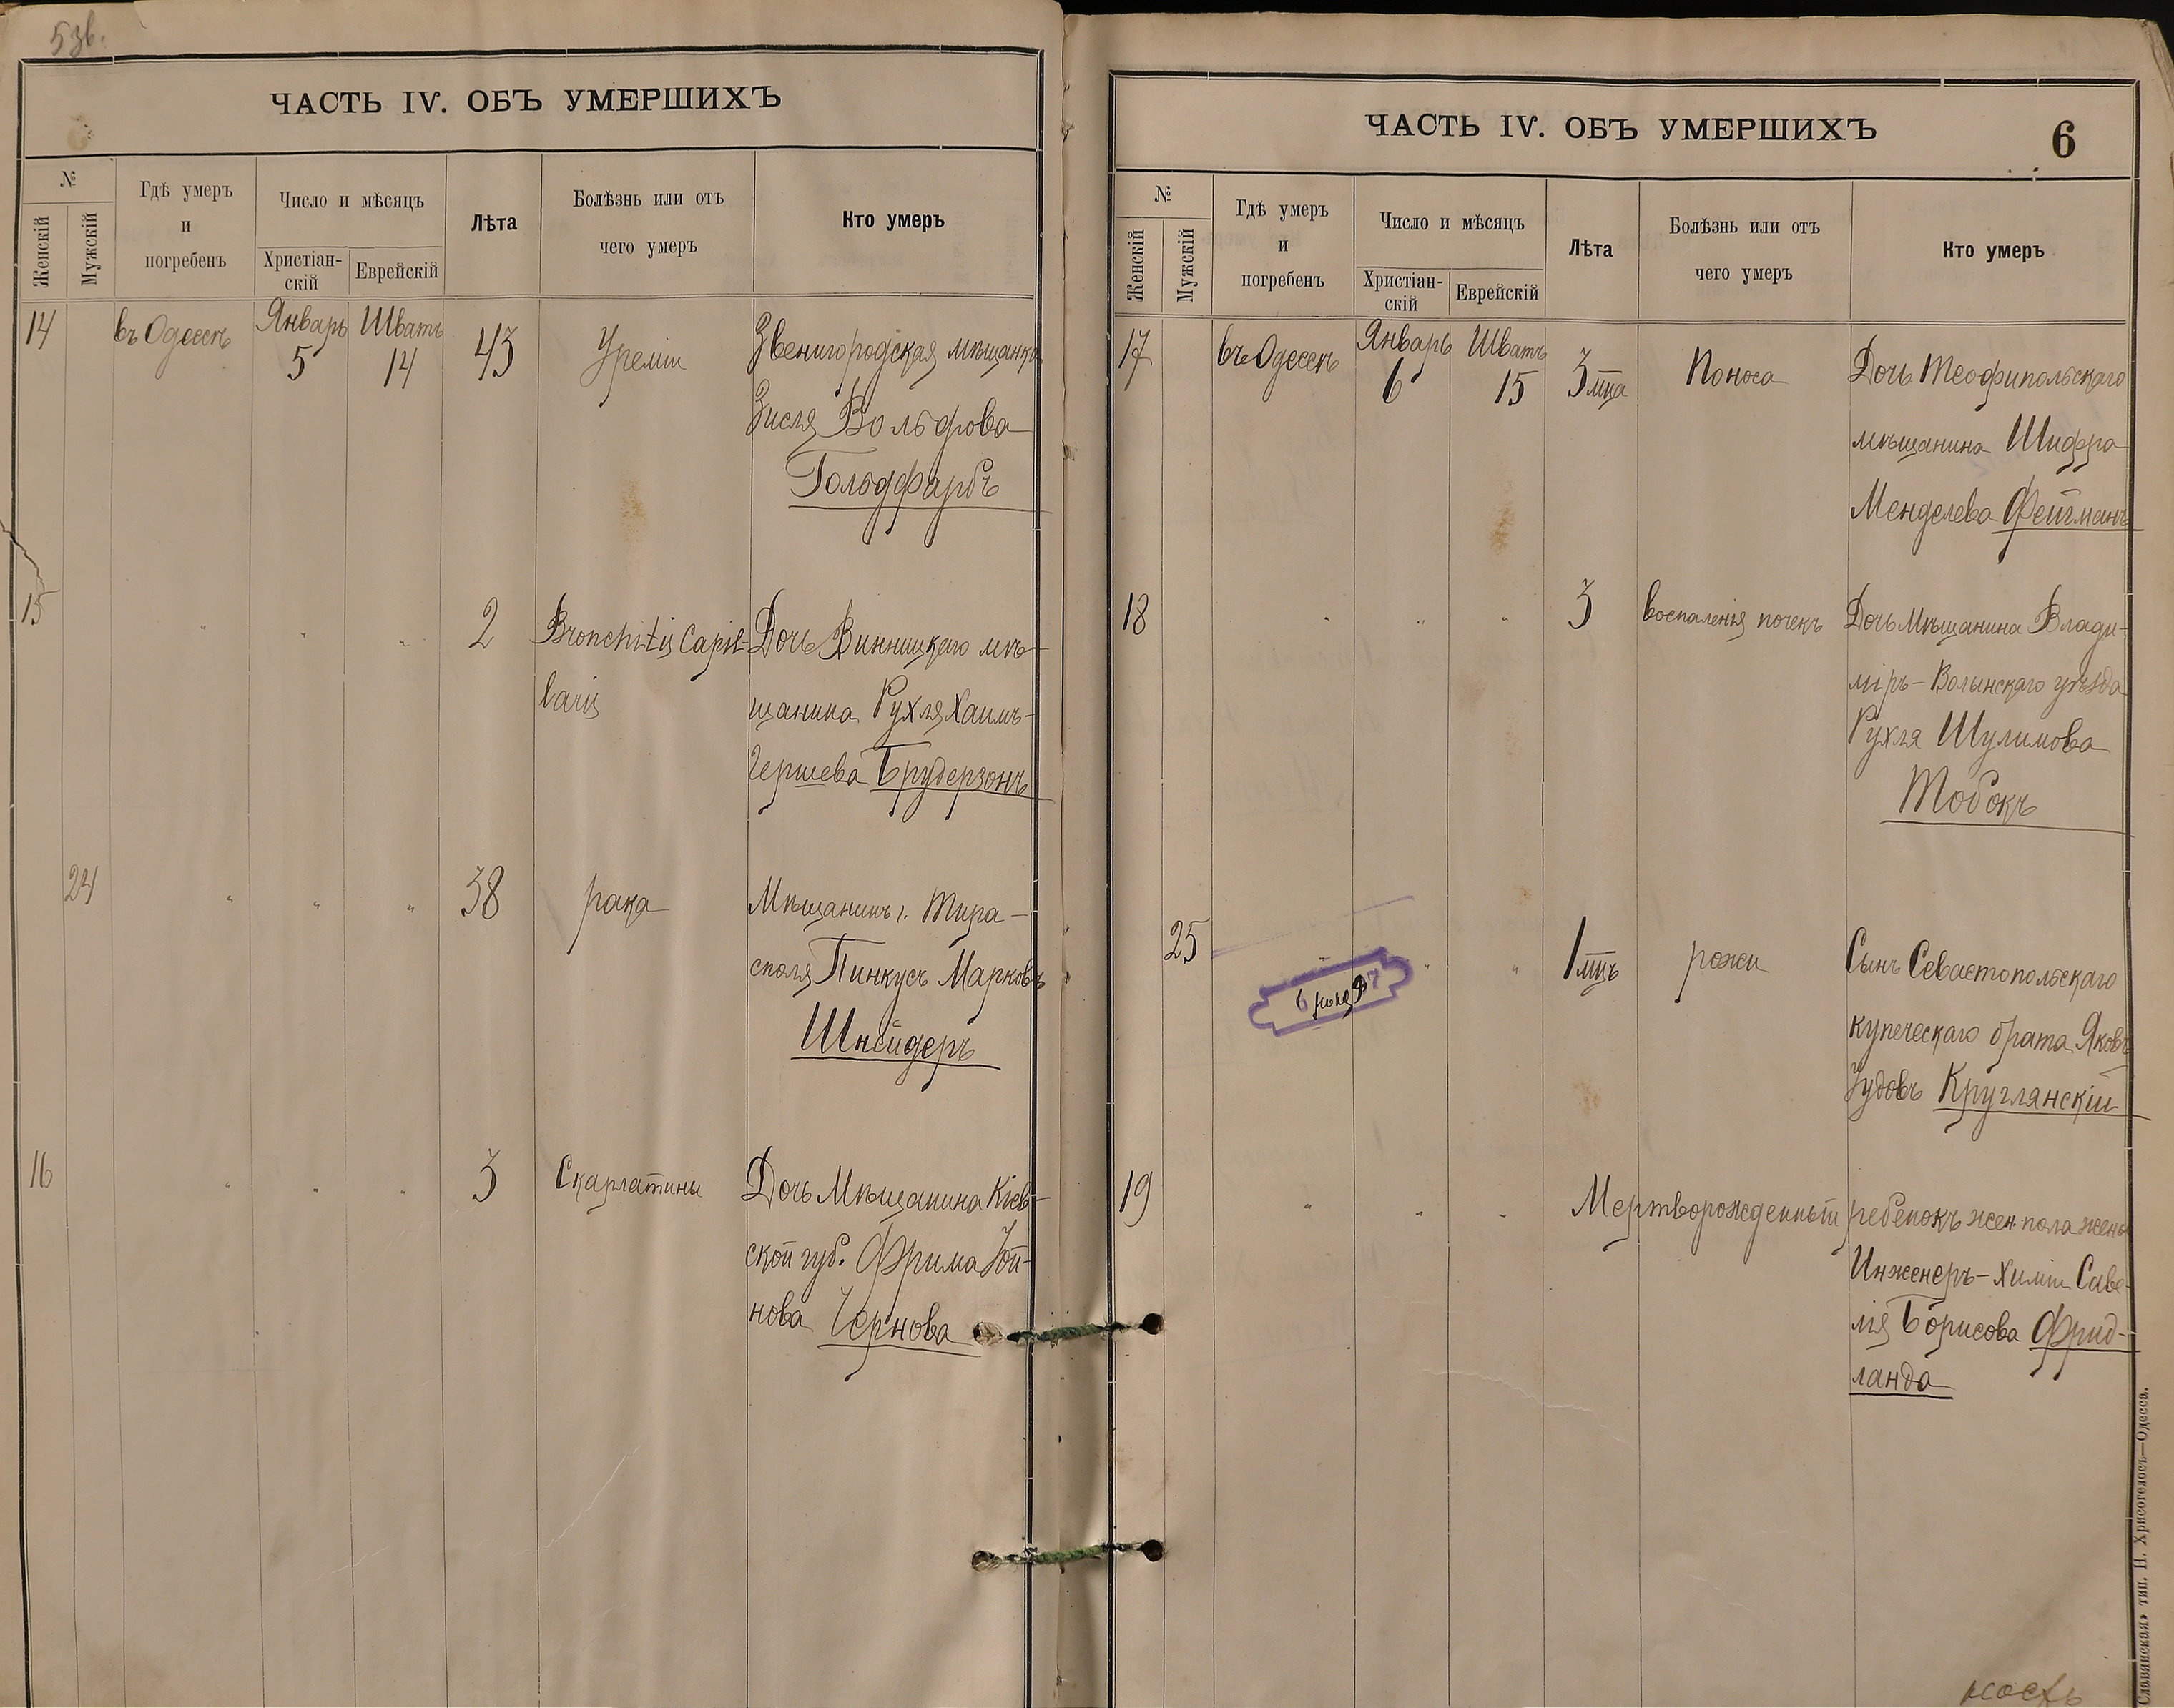 53б.
ЧАСТЬ IV. ОБЪ УМЕРШИХЪ
№
Женскій
Мужскій
Гдѣ умеръ
и
погребенъ
Число и мѣсяцъ
Христіан-
скій
Еврейскій
Лѣта
Болѣзнь или отъ
чего умеръ
Кто умеръ
14 въ Одессѣ Январь 5 Шватъ 14 43 Уреміи Звенигородская мѣщанка
Зисля Вольфова
Гольдфарбъ
15 " " " 2 Bronchitis Capil- Дочь Винницкаго мѣ-
laris щанина Рухля Хаимъ-
Гершева Брудерзонъ
24 " " " 38 рака Мѣщанинъ г. Тира-
споля Пинкусъ Марковъ
Шнейдеръ
16 " " " 3 Скарлатины Дочь Мѣщанина Кіев-
ской губ. Фрима Іой-
нова Чернова
ЧАСТЬ IV. ОБЪ УМЕРШИХЪ
6
№
Женскій
Мужскій
Гдѣ умеръ
и
погребенъ
Число и мѣсяцъ
Христіан-
скій
Еврейскій
Лѣта
Болѣзнь или отъ
чего умеръ
Кто умеръ
17 въ Одессѣ Январь 6 Шватъ 15 3 мца Поноса Дочь Теофипольскаго
мѣщанина Шифра
Менделева Фейгманъ
18 " " " 3 воспаленія почекъ Дочь Мѣщанина Влади-
міръ-Волынскаго уѣзда
Рухля Шулимова
Тобокъ
25 " " " 1 мцъ рожи Сынъ Севастопольскаго
купеческаго брата Яковъ
Іудовъ Круглянскій
19 " " " Мертворожденный ребенокъ жен пола жены
Инженеръ-Химіи Саве-
лія Борисова Фрид-
ланда
Славянская» тип. Н. Хрисогелосъ—Одесса.